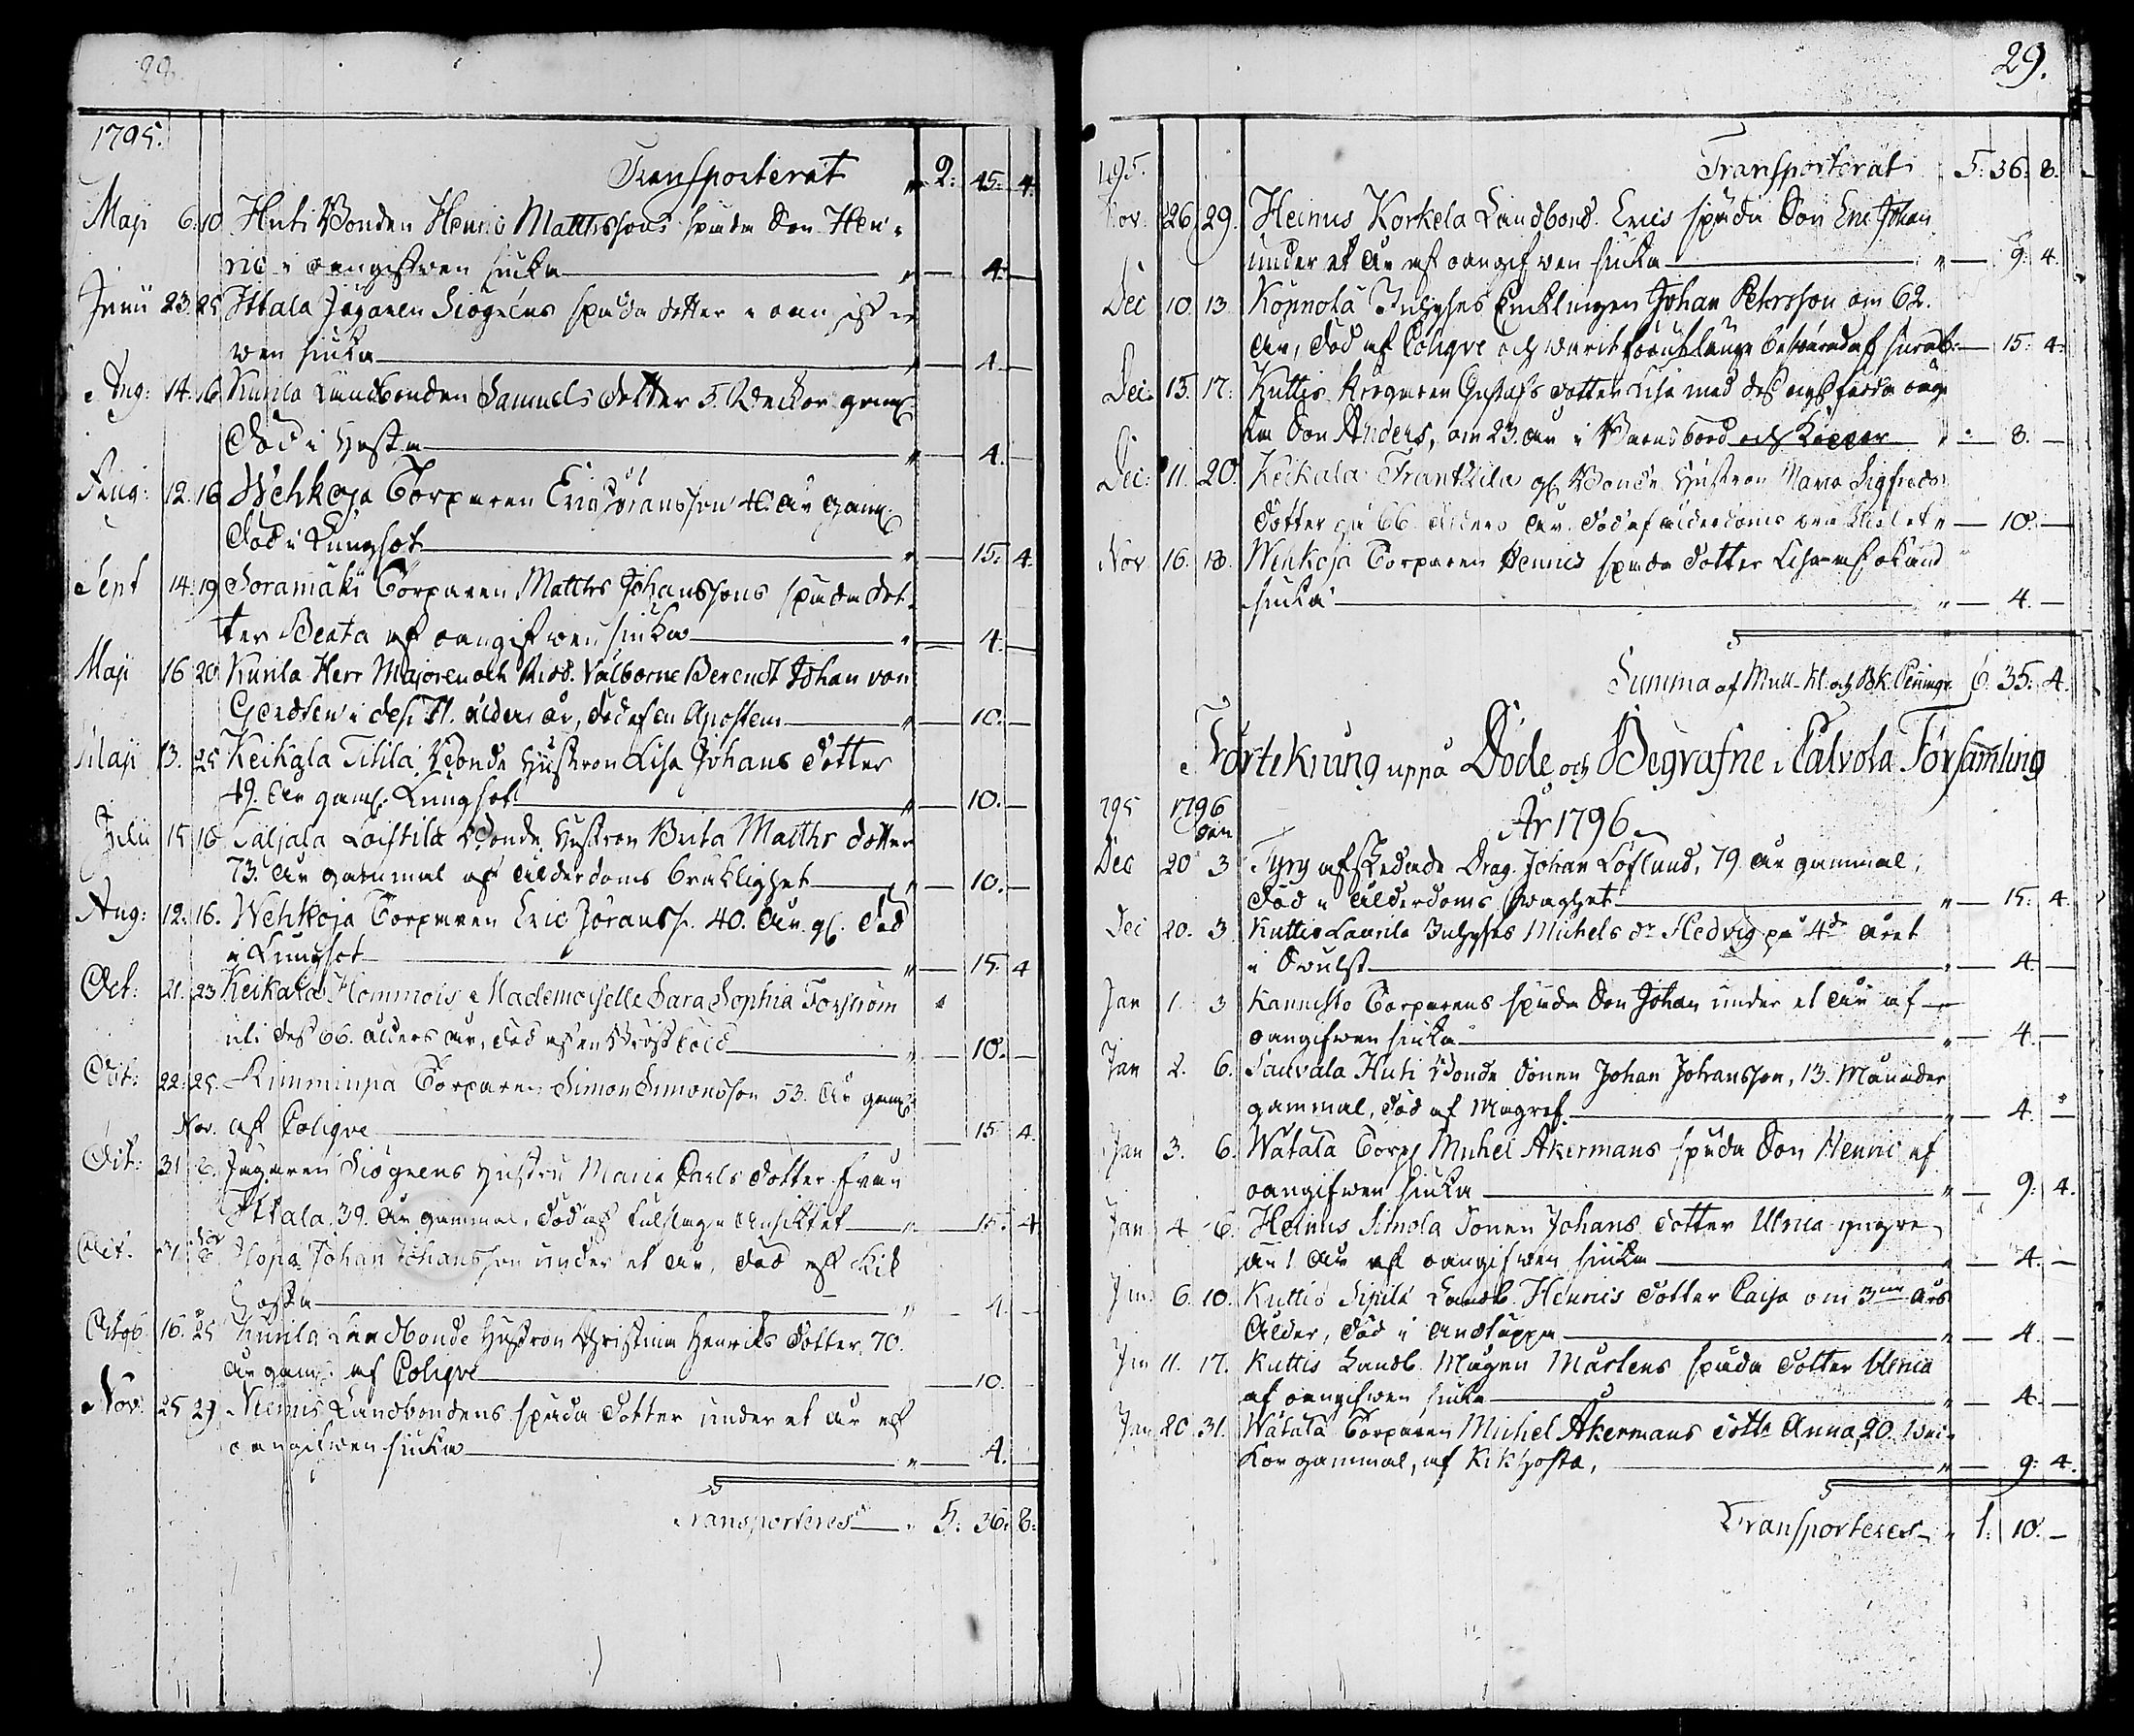 28.
1795.
Transporterat " 2: 45: 4.
Maji 6. 10 Huti Bonden Henric Matthssons späda Son Hen-
ric i oangifwen siuka " — 4. —
Junii 23. 25 Ittala Jägaren Siögrens späda dotter i oangif-
wen siuka " — 4. —
Aug: 14. 16 Kurila Landbonden Samuels dotter 5. Weckor gam.
död i Hosta " — 4. —
Aug: 12. 16 Wehkoja Torparen Eric Jöransson 40. år gam.
död i Lungsot " — 15. 4.
Sept 14. 19 Soramäki Torparen Matths Johanssons späda dot-
ter Beata af oangifwen siuka " — 4. —
Maji 16 20 Kurila Herr Majoren och Ridd. Välborne Berendt Johan von
Gerdten i dess 71. ålders år, död af en Apostem " — 10. —
Maji 13. 25 Keikala Tilila Bonde Hustron Lisa Johans dotter
49. år gam. Lungsot " — 10. —
Julii 15 18 Saljala Loistila Bonde Hustron Brita Matths dotter
73. år gammal af ålderdoms bräklighet " — 10. —
Aug: 12. 16. Wehkoja Torparen Eric Jöranss. 40. år gl. död
i Lungsot " — 15. 4
Oct: 21. 23 Keikala Hommois Mademoiselle Sara Sophia Forström
uti dess 66. ålders år, död af en Bröst böld " — 10. —
Oct: 22. 25. Rimminpä Torparen Simon Simonsson 53. år gam.
Nov. af Colique — 15. 4.
Oct: 31 6. Jägaren Siögrens Hustru Maria Carls dotter från
Ittala. 39. år gammal, död af Fulslag i Ansiktet " — 15. 4
Oct. 31. Nov 6. Johan Johansson under et år, död af Kik
Hosta " — 4. —
Octob 16. 25 Kurila Landbonde Hustron Christina Henriks dotter, 70.
år gam. af Colique — 10.
Nov. 25 29 Niemis Landbondens späda dotter under et år af
oangifwen siuka " — 4. —
Transporteres " 5. 36. 8.
29.
1795. Transporterat 5: 36: 8.
Nov. 26 29. Heinus Korkela Landbond. Erics späda Son Eric Johan
under et år af oangifwen siuka " — 9: 4.
Dec 10. 13 Konnola Inhyses Encklingen Johan Petersson om 62.
år, död af Colique och warit förut länge beswärad af — 15: 4.
Dec: 15. 17: Kuttis Krögaren Gustafs dotter Lisa med dess
Son Anders, om 23. år i Barnsbörd " 8. —
Dec: 11. 20. Keikala Franttila gl. Bonde Hustron Maria Sigfreds
dotter på 66 ålders år. död af ålderdoms bräcklighet " — 10. —
Nov 16. 18. Wehkoja Torparen Hennes späda dotter Lisa af okänd
siuka " — 4. —
Summa af Mull- Kl. och Bk. Peningr 6. 35: 4.
Förtekning uppå Döde och Begrafne i Calvola Församling
År 1796
795 1796
Jan
Dec 20 3 Tyry afskedade Drag. Johan Löflund, 79 år gammal,
död i ålderdoms swaghet " — 15: 4.
Dec 20. 3. Kuttis Laurila Inhyses Michels dr Hedvig på 4de året
i Swulst " — 4. —
Jan 1. 3 Kannisto Torparens späda Son Johan under et år af
oangifwen siuka " — 4. —
Jan 2. 6. Sauvala Huti Bonde Sonen Johan Johansson, 13. Månader
gammal, död af Magref " — 4. —
Jan 3. 6. Watala Torp. Michel Åkermans späda Son Henric af
oangifwen siuka " — 9: 4.
Jan 4 6. Heinus Simola Sonen Johans dotter Ulrica yngre
än 1 år af oangifwen siuka " — 4. —
Jan 6. 10. Kuttis Sipilä Landb. Henrics dotter Caisa om 3ne års
ålder, död i Andtäppa " — 4. —
Jan 11. 17. Kuttis Landb. Mågen Mårtens späda dotter Ulrica
af oangifwen siuka " — 4. —
Jan 20 31. Watala Torparen Michel Åkermans dottr Anna, 20. Wec-
kor gammal, af Kikhosta, " — 9: 4.
Transporteres " 1: 10. —